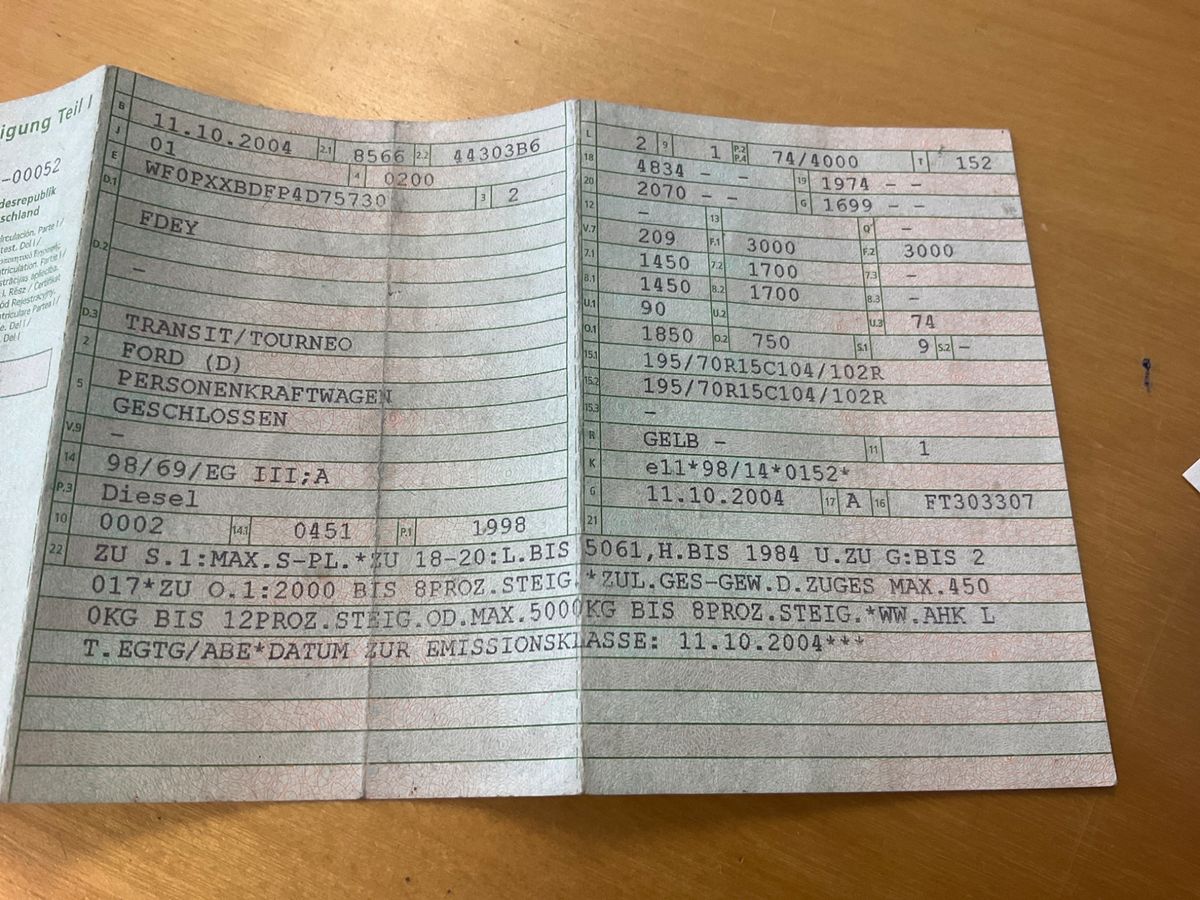 igung Teil I
-00052
desrepublik
schland
B 11.10.2004 2.1 8566 2.2 44303B6
J 01 4 0200
E WF0PXXBDFP4D75730 3 2
D.1
FDEY
D.2
–
D.3 TRANSIT/TOURNEO
2 FORD (D)
5 PERSONENKRAFTWAGEN
GESCHLOSSEN
V.9 –
14 98/69/EG III;A
P.3 Diesel
10 0002 14.1 0451 P.1 1998
L 2 9 1 P.2 P.4 74/4000 T 152
18 4834 – – 19 1974 – –
20 2070 – – G 1699 – –
12 – 13 Q –
V.7 209 F.1 3000 F.2 3000
7.1 1450 7.2 1700 7.3 –
8.1 1450 8.2 1700 8.3 –
U.1 90 U.2 U.3 74
O.1 1850 O.2 750 S.1 9 S.2 –
15.1 195/70R15C104/102R
15.2 195/70R15C104/102R
15.3 –
R GELB – 11 1
K e11*98/14*0152*
6 11.10.2004 17 A 16 FT303307
21
22 ZU S.1:MAX.S-PL.*ZU 18-20:L.BIS 5061,H.BIS 1984 U.ZU G:BIS 2
017*ZU O.1:2000 BIS 8PROZ.STEIG.*ZUL.GES-GEW.D.ZUGES MAX.450
0KG BIS 12PROZ.STEIG.OD.MAX.5000KG BIS 8PROZ.STEIG.*WW.AHK L
T.EGTG/ABE*DATUM ZUR EMISSIONSKLASSE: 11.10.2004***